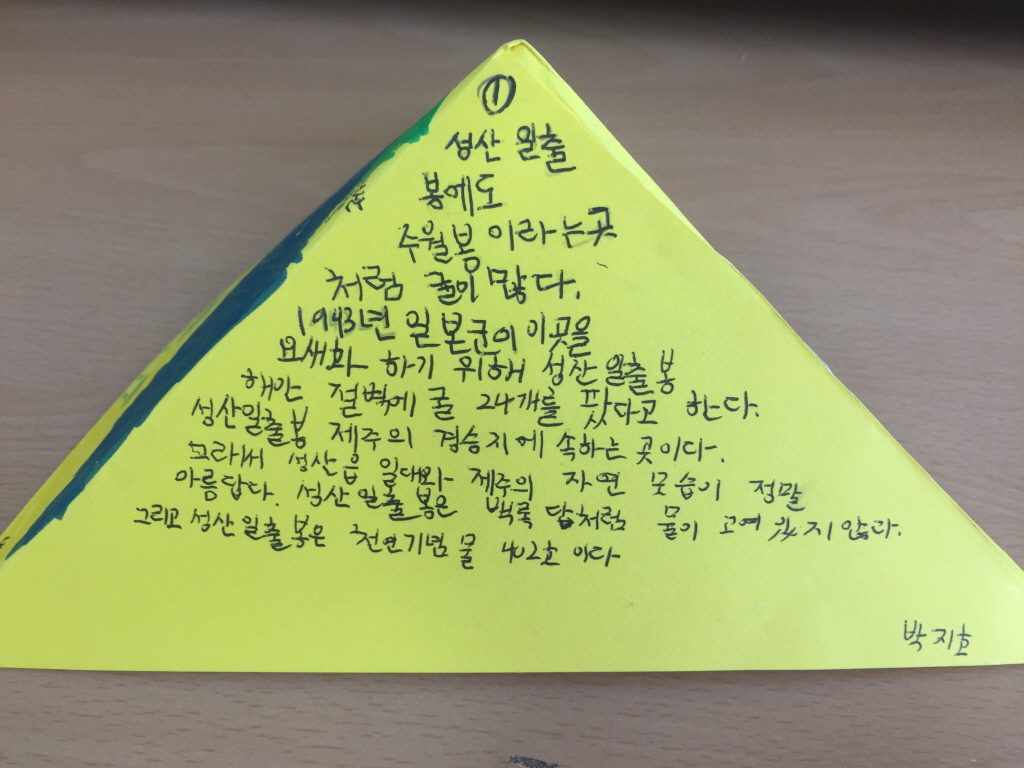 ①
성산 일출
봉에도
수월봉이라는곳
처럼 굴이 많다.
1943년 일본군이 이곳을
요새화 하기 위해 성산 일출봉
해안 절벽에 굴 24개를 팠다고 한다.
성산일출봉 제주의 경승지에 속하는 곳이다.
모라써 성산읍 일대와 제주의 자연 모습이 정말
아름답다. 성산일출봉은 백록담처럼 물이 고여 있지 않다.
그리고 성산일출봉은 천연기념물 402호 이다
박지호